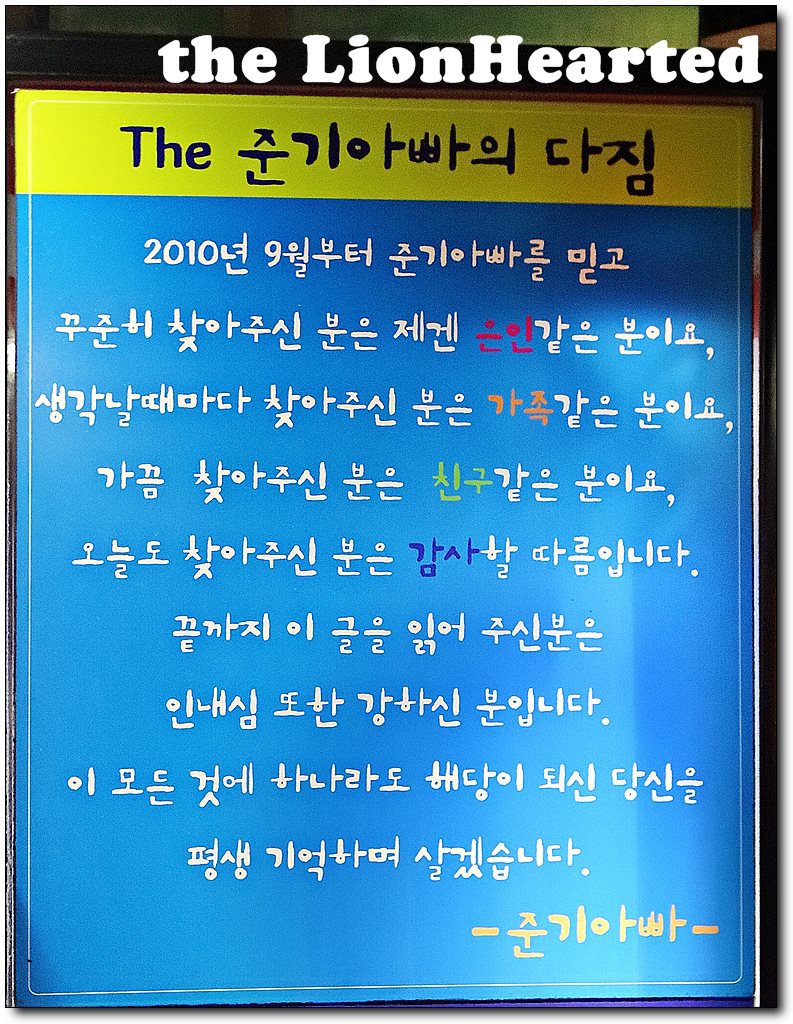 the LionHearted
The 준기아빠의 다짐
2010년 9월부터 준기아빠를 믿고
꾸준히 찾아주신 분은 제겐 은인같은 분이요,
생각날때마다 찾아주신 분은 가족같은 분이요,
가끔 찾아주신 분은 친구같은 분이요,
오늘도 찾아주신 분은 감사할 따름입니다.
끝까지 이 글을 읽어 주신분은
인내심 또한 강하신 분입니다.
이 모든 것에 하나라도 해당이 되신 당신을
평생 기억하며 살겠습니다.
-준기아빠-